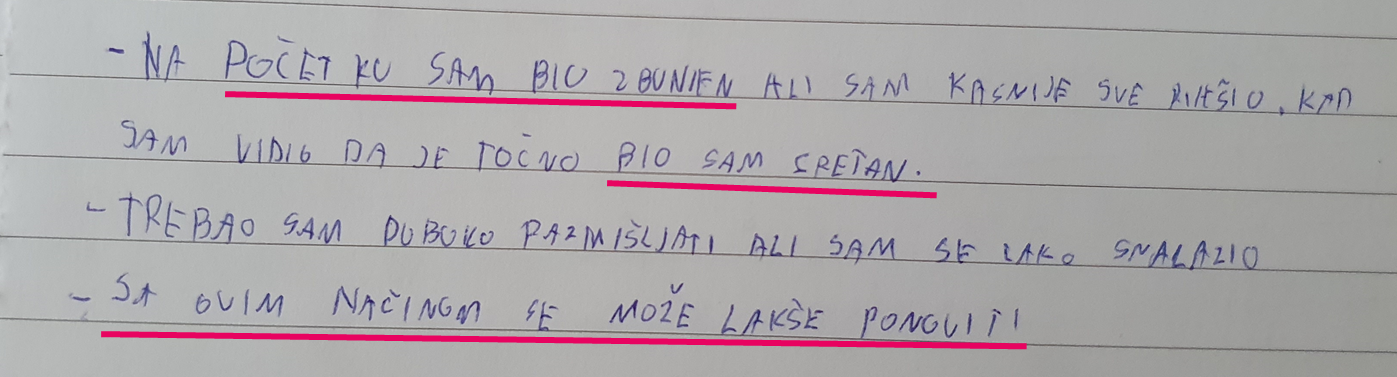 - NA POČETKU SAM BIO ZBUNJEN ALI SAM KASNIJE SVE RIJEŠIO. KAD
SAM VIDIO DA JE TOČNO BIO SAM SRETAN.
- TREBAO SAM DUBOKO RAZMIŠLJATI ALI SAM SE LAKO SNALAZIO
- SA OVIM NAČINOM SE MOŽE LAKŠE PONOVITI